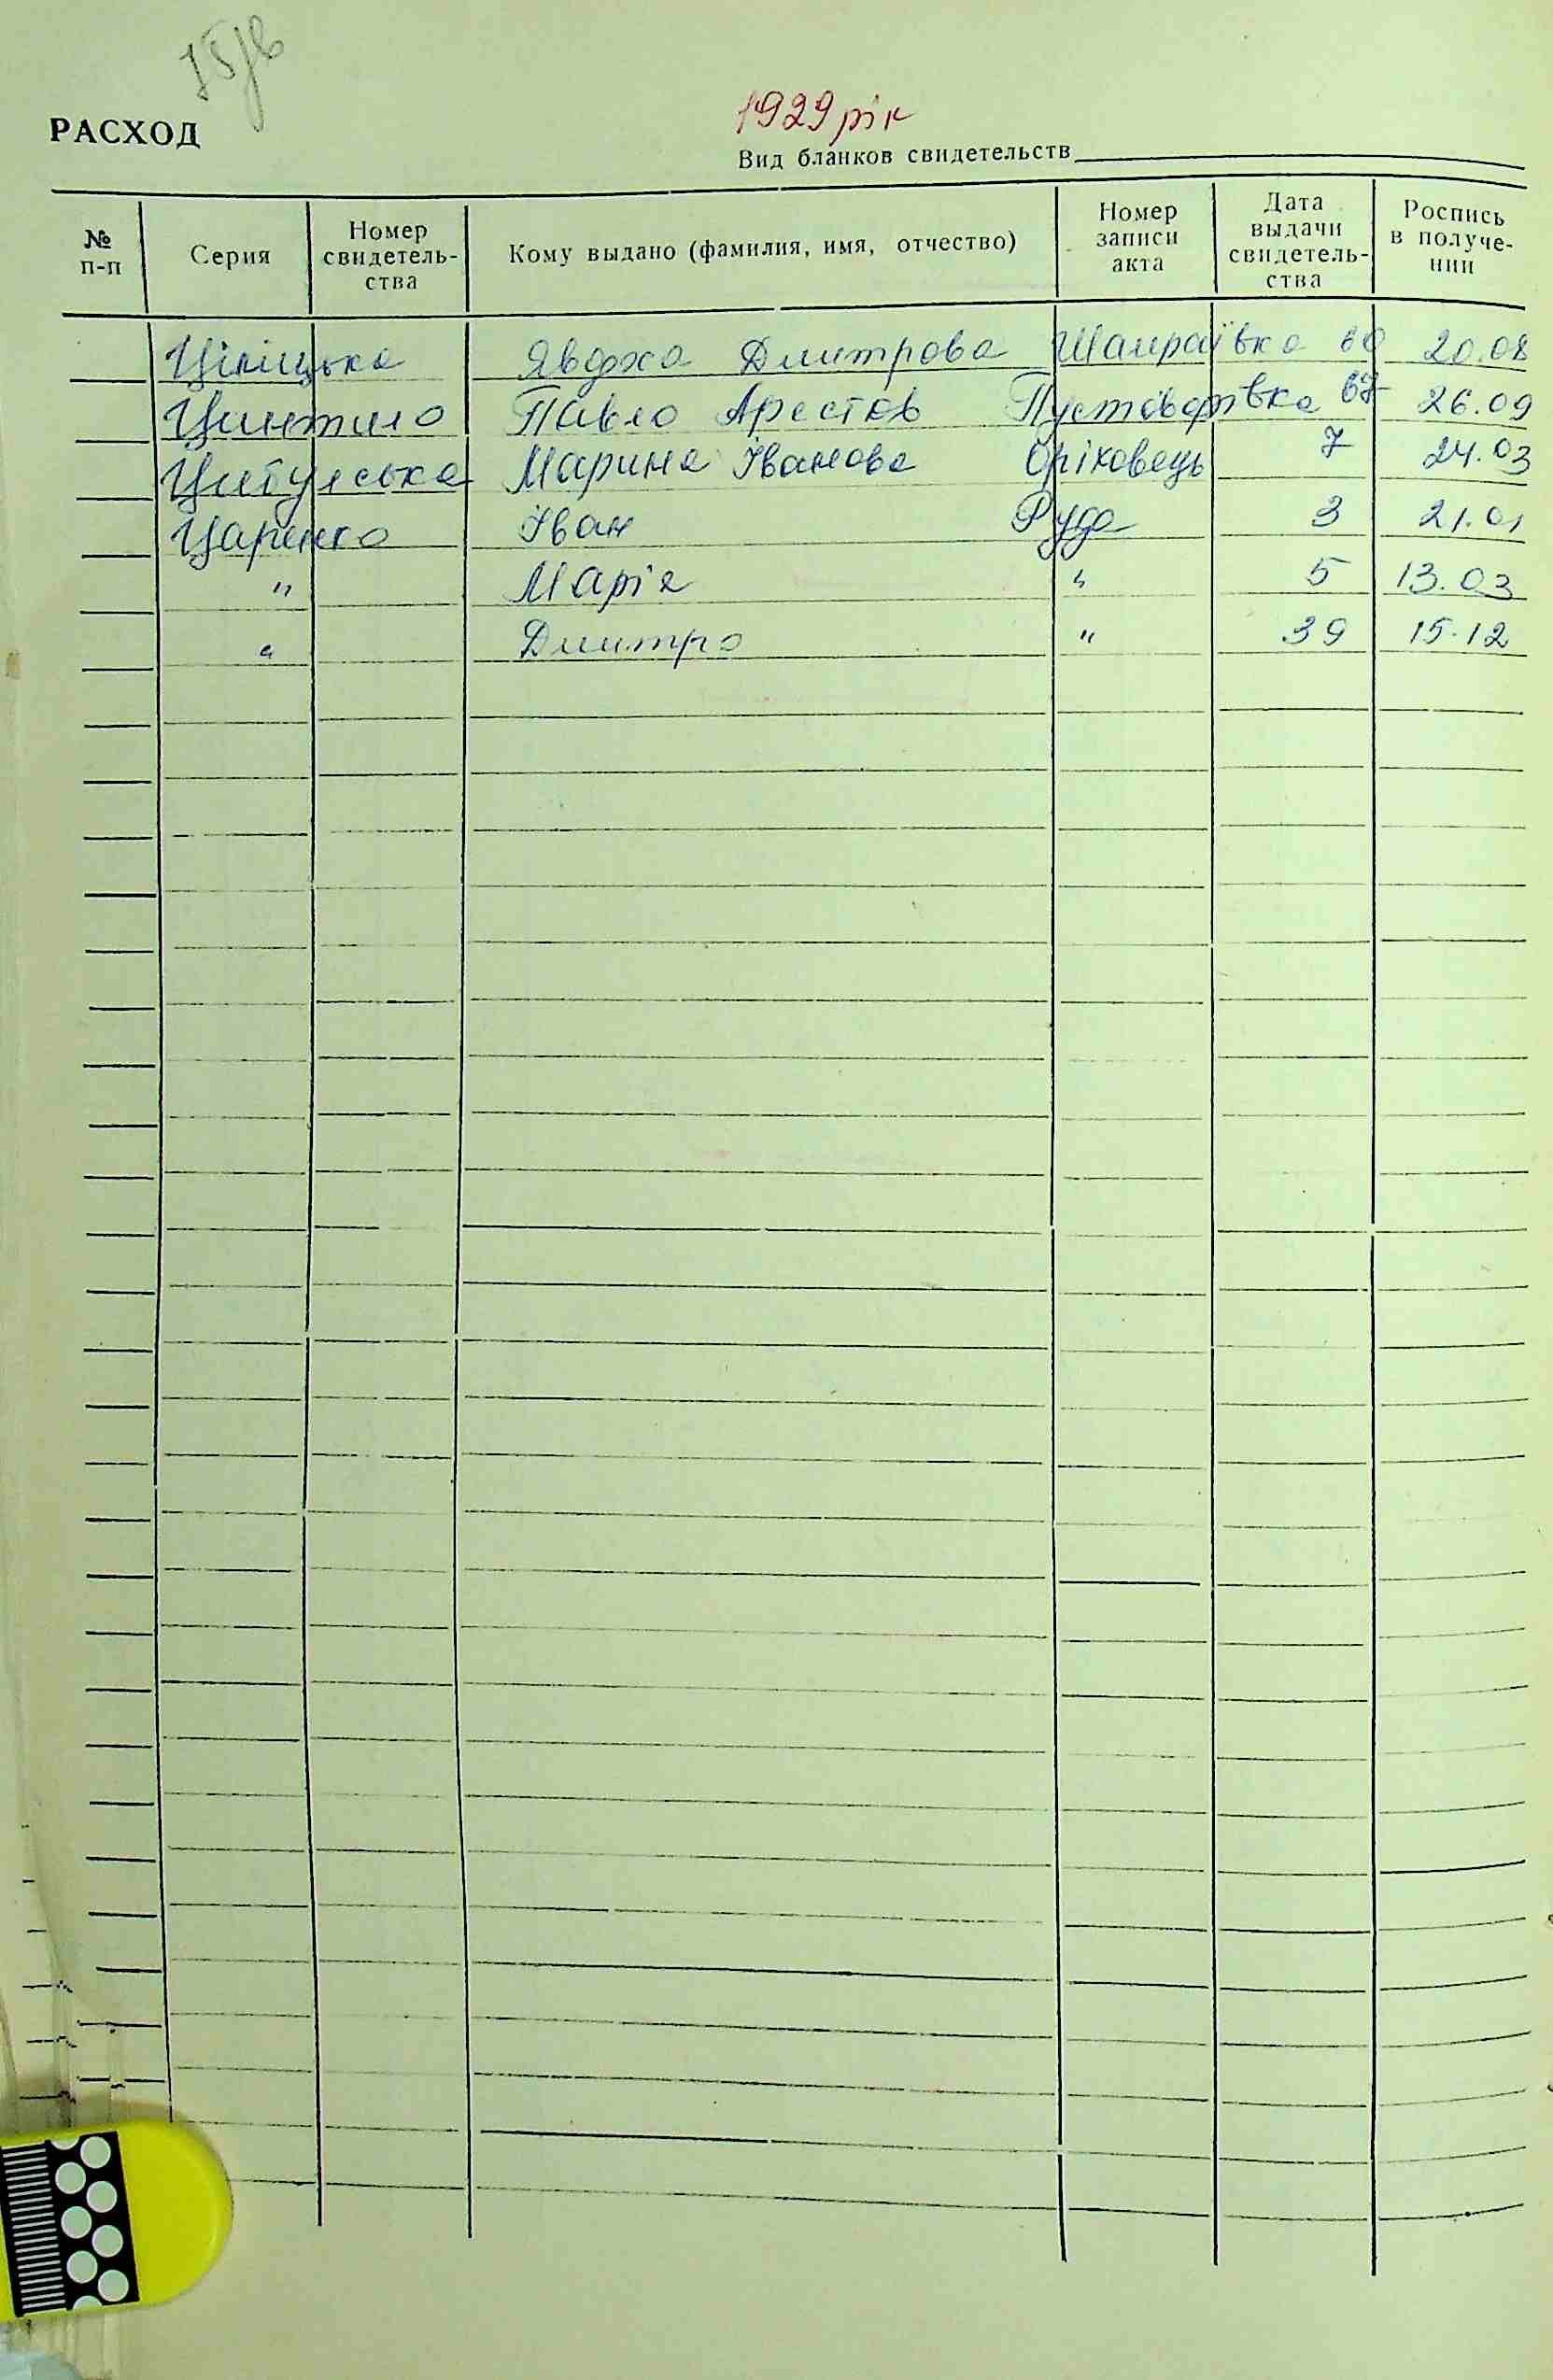 1929 рік
РАСХОД
Вид бланков свидетельств
№ п-п Серия Номер свидетель- ства Кому выдано (фамилия, имя, отчество) Номер записи акта Дата выдачи свидетель- ства Роспись в получе- нии
Явдоха Дмитрова Шамраївка 60 20.08
Павло Арестов Пустоварівка 67 26.09
Цибульська Марина Іванова Оріховець 7 24.03
Царенко Іван Руда 3 21.01
" Марія " 5 13.03
" Дмитро " 39 15.12